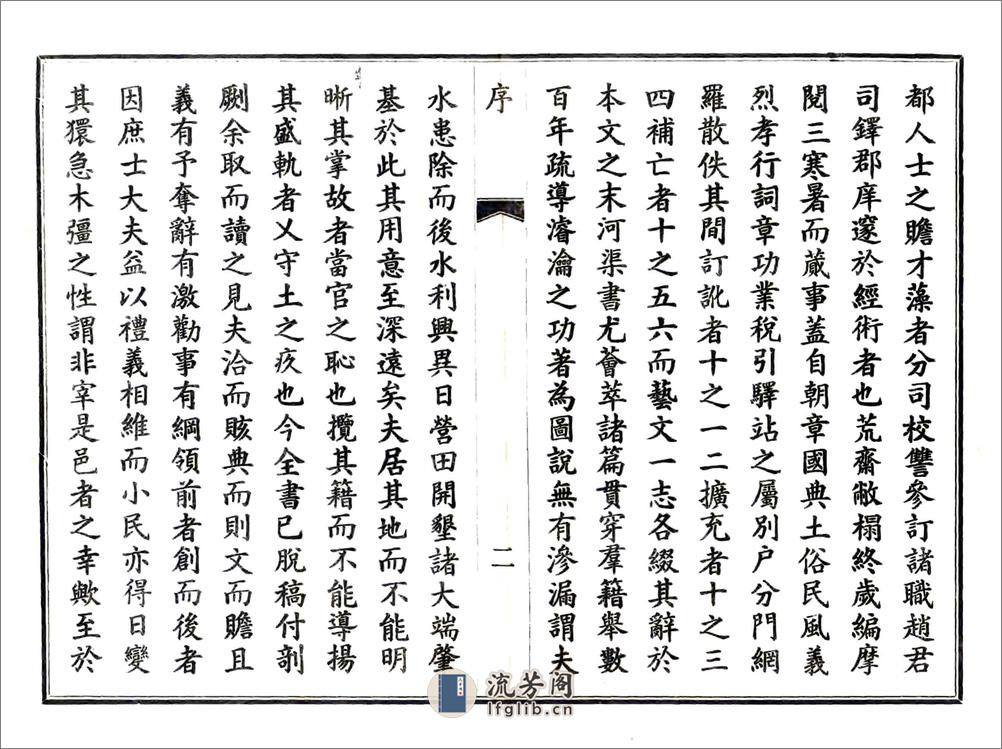 都人士之贍才藻者分司校讐參訂諸職趙君
司鐸郡庠邃於經術者也荒齋敝榻終歲編摩
閱三寒暑而蕆事蓋自朝章國典土俗民風義
烈孝行詞章功業稅引驛站之屬別户分門網
羅散佚其間訂訛者十之一二擴充者十之三
四補亡者十之五六而藝文一志各綴其辭於
本文之末河渠書尤薈萃諸篇貫穿羣籍舉數
百年疏導濬瀹之功著為圖說無有滲漏謂夫
序
二
水患除而後水利興異日營田開墾諸大端肇
基於此其用意至深遠矣夫居其地而不能明
晣其掌故者當官之恥也攬其籍而不能導揚
其盛軌者乂守土之疚也今全書已脫稿付剞
劂余取而讀之見夫洽而賅典而則文而贍且
義有予奪辭有激勸事有綱領前者創而後者
因庶士大夫益以禮義相維而小民亦得日變
其獧急木彊之性謂非宰是邑者之幸歟至於
流芳阁
lfglib.cn